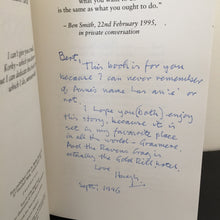 what you want to do
is the same as what you ought to do."
– Ben Smith, 22nd February 1995,
in private conversation
Bert,
This book is for you
because I can never remember
if Anne's name has an 'e' or
not.
I hope you (both) enjoy
this story, because it is
set in my favourite place
in all the world – Grasmere.
And the Ravens Crag is
actually the Gold Rill Hotel.
Love
Sept, 1996
I can't give you